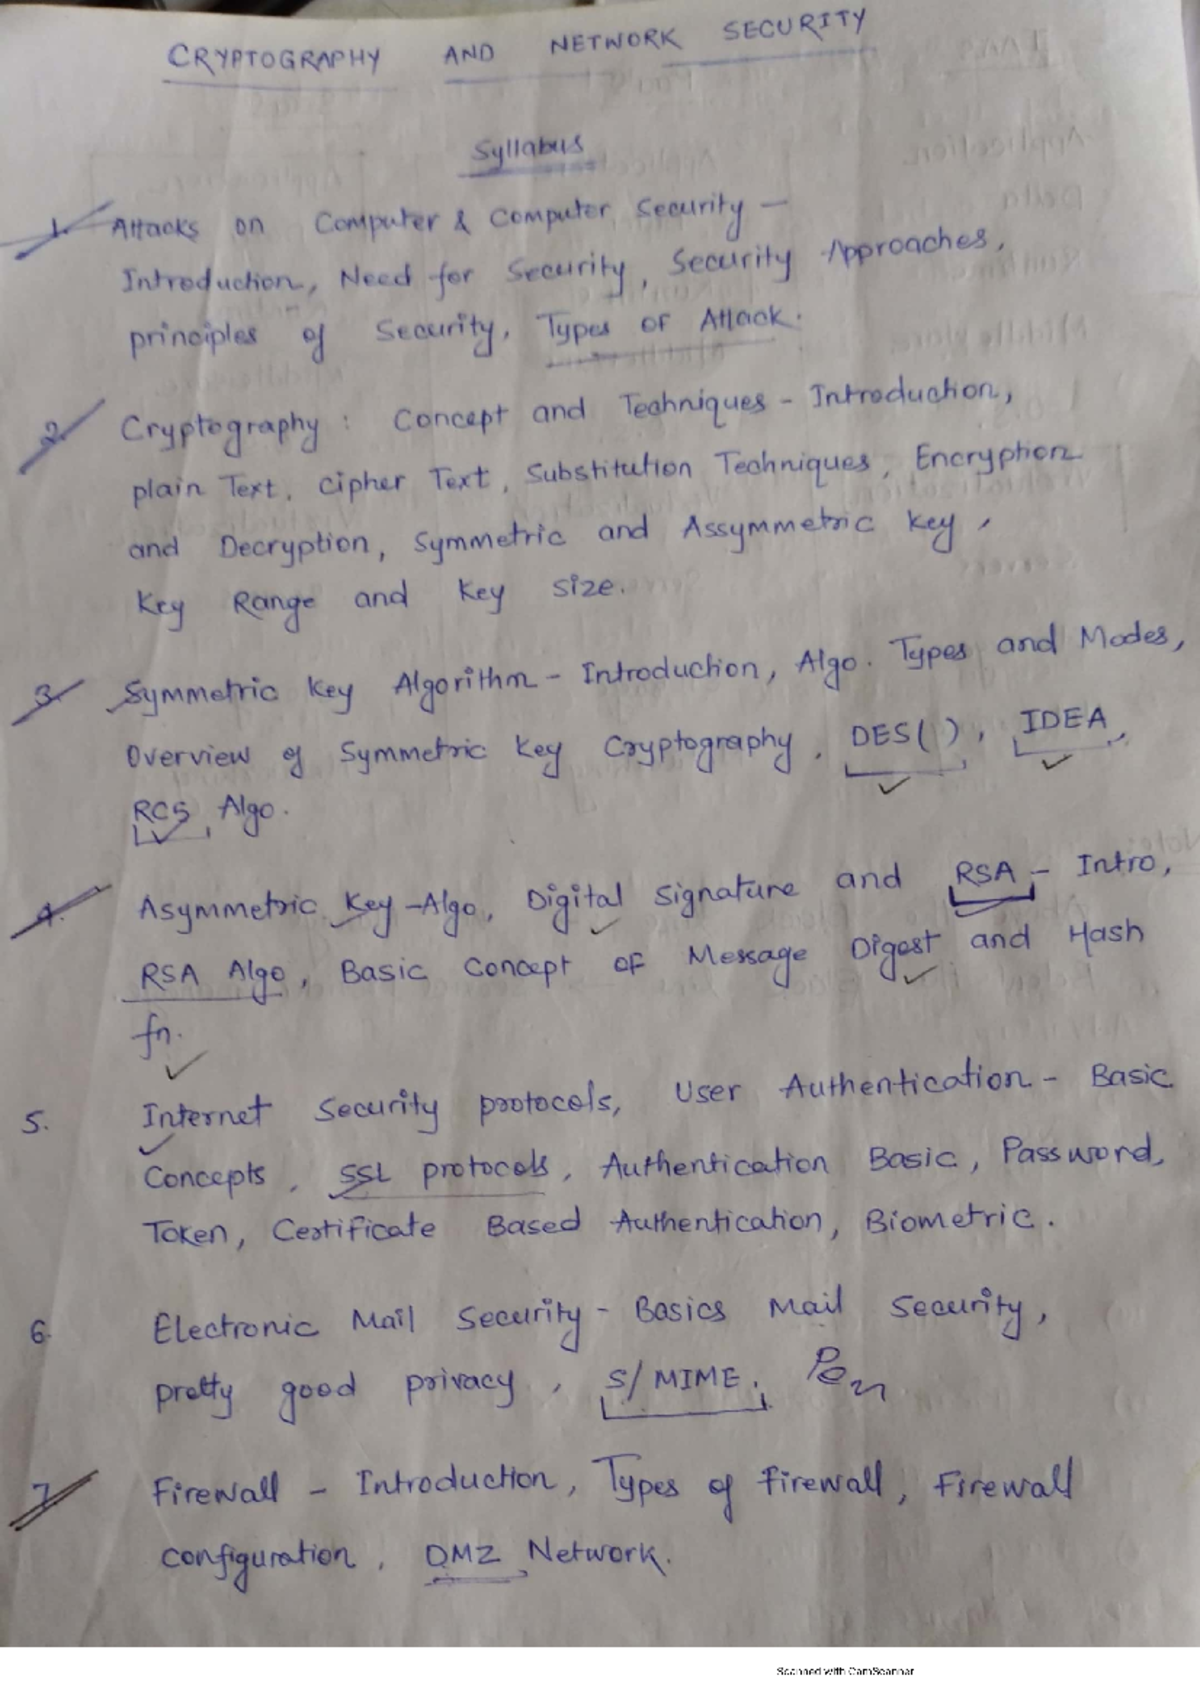 CRYPTOGRAPHY AND NETWORK SECURITY
Syllabus
1. Attacks on Computer & Computer Security –
Introduction, Need for Security, Security Approaches,
principles of Security, Types of Attack.
2. Cryptography : Concept and Techniques - Introduction,
plain Text, Cipher Text, Substitution Techniques, Encryption
and Decryption, Symmetric and Assymmetric key,
Key Range and key size.
3. Symmetric key Algorithm - Introduction, Algo. Types and Modes,
Overview of Symmetric key Cryptography, DES( ), IDEA,
RC5, Algo.
4. Asymmetric key-Algo, Digital signature and RSA - Intro,
RSA Algo, Basic Concept of Message Digest and Hash
fn.
5. Internet Security protocols, User Authentication - Basic
Concepts, SSL protocols, Authentication Basic, Password,
Token, Certificate Based Authentication, Biometric.
6. Electronic Mail Security - Basics Mail Security,
pretty good privacy, S/MIME.
7. Firewall - Introduction, Types of firewall, Firewall
configuration, DMZ Network.
Scanned with CamScanner